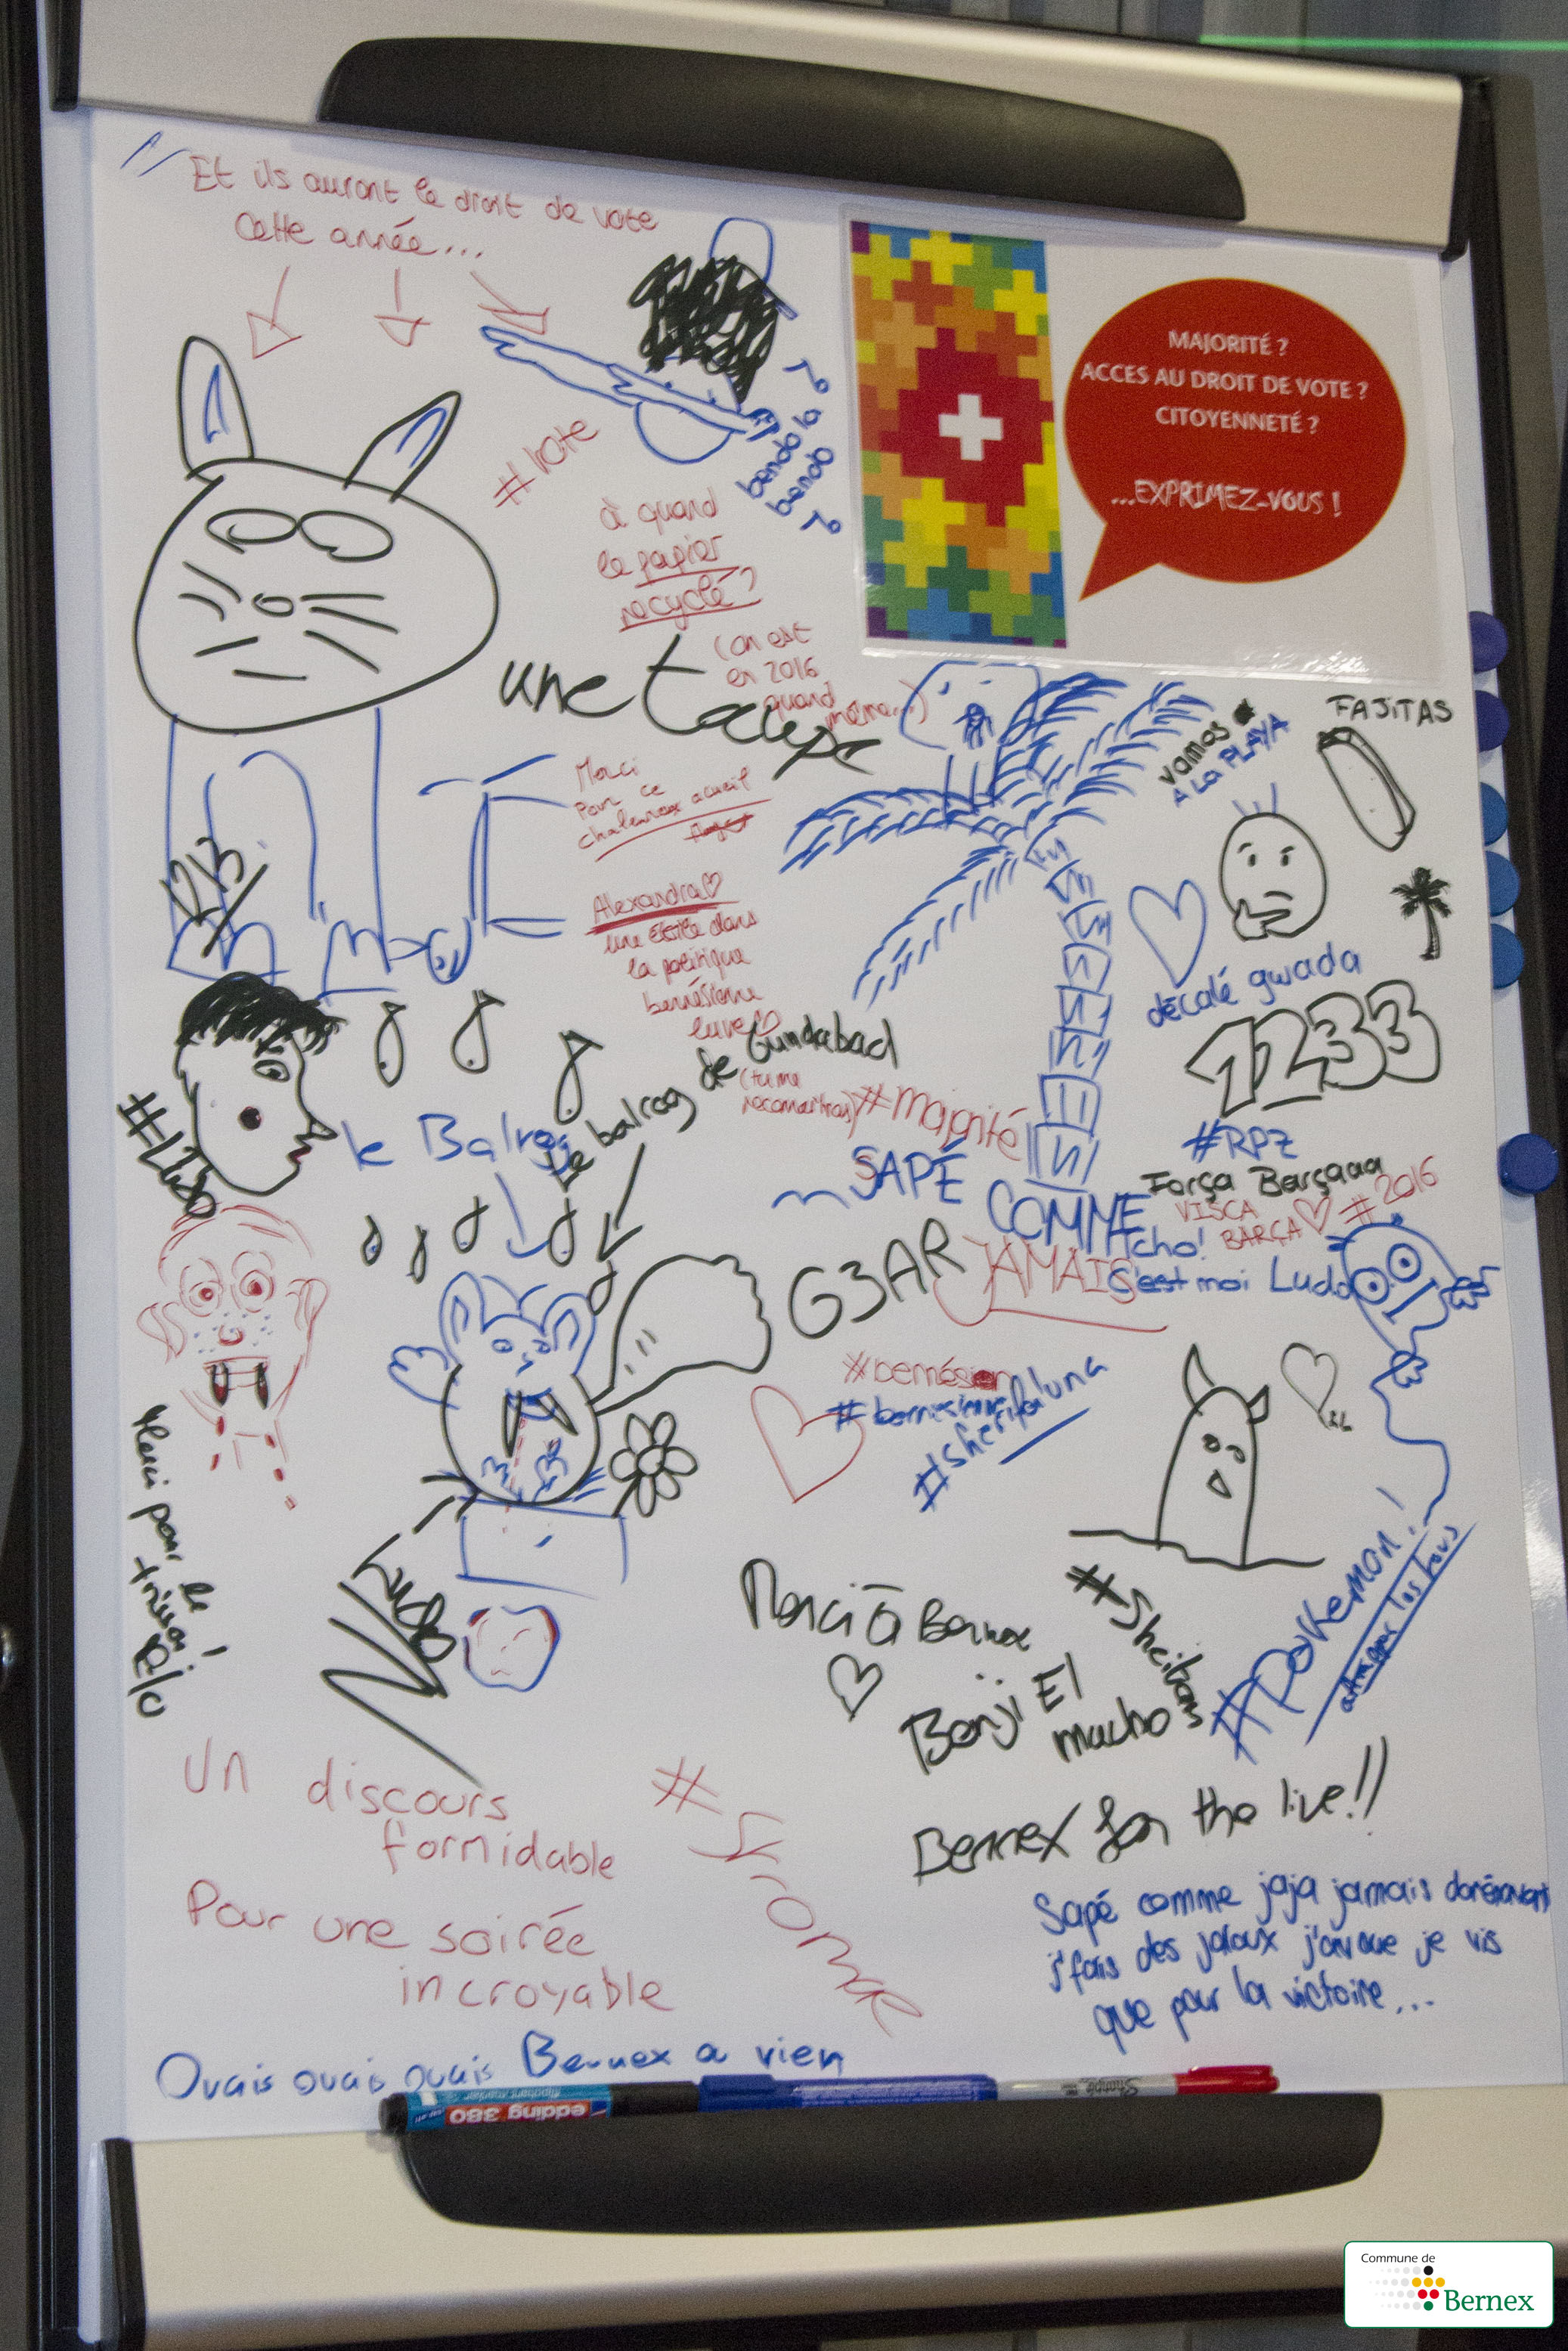 Et ils auront le droit de vote
Cette année...
#vote
7°
bendo la
bendo
7°
MAJORITÉ ?
ACCES AU DROIT DE VOTE ?
CITOYENNETÉ ?
...EXPRIMEZ-VOUS !
à quand
le papier
recyclé?
(on est
en 2016
quand
même...)
une
vamos a
LA PLAYA
FAJITAS
Merci
Pour ce
chaleureux acueil
1213
Alexandra♡
une étoile dans
la politique
bernésienne
luve♡
décalé gwada
1233
le Balrog
Le balrog de Gundabad
(tu me
reconnaitras)
#majorité
SAPÉ
COMME
JAMAIS
#RPZ
Força Barçaaa
VISCA
BARÇA♡
#2016
cho!
C'est moi Ludo
G3AR
#bernésien
#bernesienne
#sherifaluna
Merci pour le
Merci à Bernex
Benji El
macho
#Sheitans
#Pokemon!
attraper les tous
Un discours
formidable
Pour une soirée
incroyable
#Stromae
Bernex for the live!!
Sapé comme jaja jamais dorénavant
j'fais des jaloux j'avoue je vis
que pour la victoire...
Ouais ouais ouais Bernex a vien
edding 380
Sharpie
Commune de
Bernex